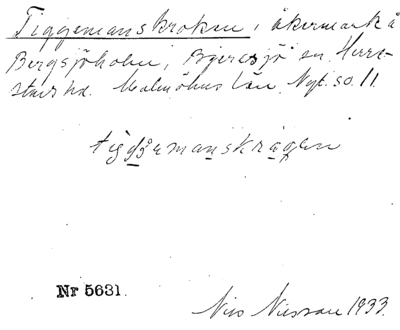 Tiggemanskroken, åkermark å
Bergsjöholm, Bjeresjö sn. Herre-
stads hd. Malmöhus län. Nyt. so. 11.
tiggemanskrågen
Nr 5631.
Nils Nilsson 1933.